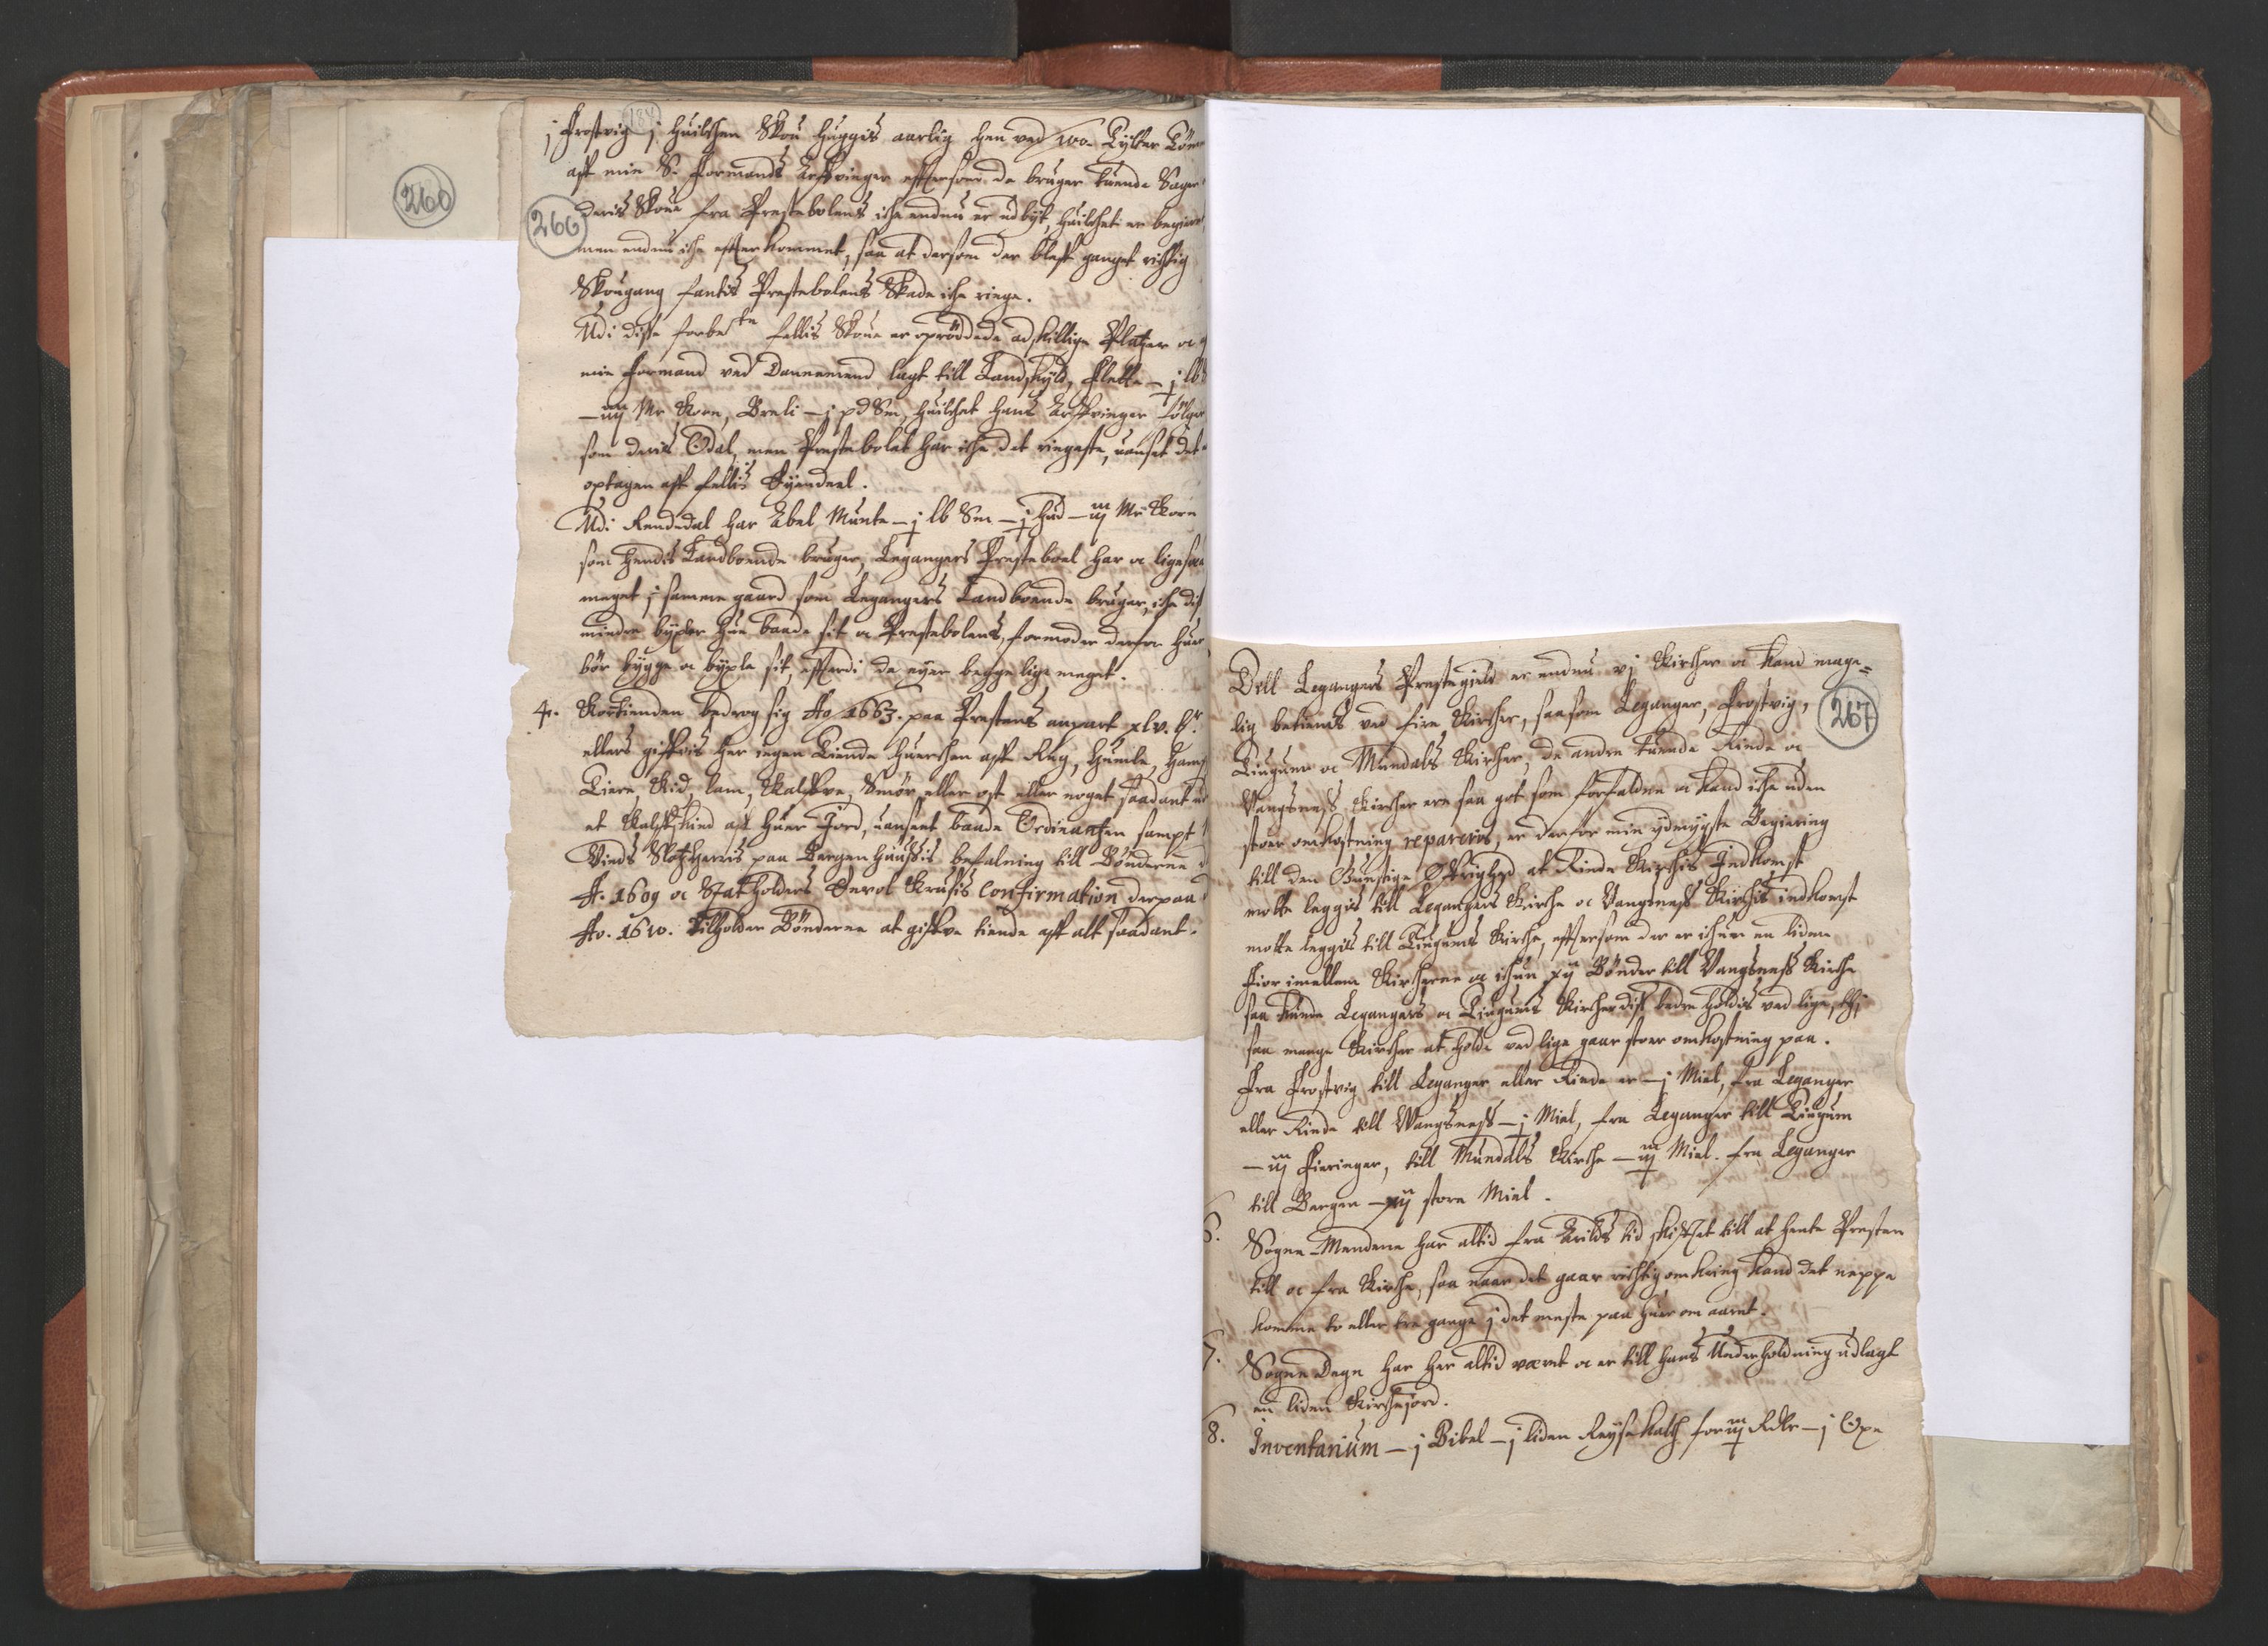 184
260
266
j Frosvig j huilchen Skou huggis aarlig hen ved 100. Tylter Töm
aff min S. Formands Arffvinger effersom de bruger tuende Sager
deris Skoue fra Prestebolens iche endnu er udbyt, huilchet er begieret
men endnu iche effterkommet, saa at dersom der bleff ganget richtig
Skougang fantis Prestebolens Skade iche ringe.
Udi disse forbe^te fellis Skoue er opröddede adskillige Platzer oc
min Formand ved Dannemend lagt till Landskyld, Flette - j lb
- iij Mr Korn, Breli - j pd Sm, huilchet hans Arffvinger fölger
som deris Odal, men Prestebolet har iche det ringeste, uanset det
optagen aff fellis Eyendeel.
Udi Rendedal har Abel Munte - j lb Sm - j hud - iij Mr Korn
som hendis Landboende bruger, Legangers Presteboel har oc ligesaa
meget j samme gaard som Legangers Landboende bruger, iche dis
mindre byxler hun baade sit oc Prestebolens, formoder derfor huer
bör bygge oc byxle sit, efferdi de eyer begge lige meget.
4. Kortienden bedrog sig Ao 1663. paa Prestens anpart xlv. tr.
ellers giffvis her ingen Tiende huerchen aff Rug, Humle, Hamp
Tiere, Kid, lam, Kalffve, Smör eller ost eller noget saadant
et Kalffskind aff huer Jord, uanseet baade Ordinantzen sampt
Vinds Slotzherris paa Bergenhuussis befalning till Bönderne
A. 1609 oc Statholders Envol Krusis Confirmation derpaa
Ao. 1610. tilholder Bönderne at giffve tiende aff alt saadant.
267
Dell Legangers Prestegield er endnu vj Kircher oc kand mage=
lig betienis ved fire Kircher, saasom Leganger, Frosvig,
Tiugum oc Mundals Kircher, de andre tuende Rinde oc
Vangsness Kircher ere saa got som forfaldne oc kand iche uden
stoer omkostning repareris, er derfor min ydmygste Begiering
till den Gunstige Øffrighed at Rinde Kirchis Indkomst
motte leggis till Legangers Kirche oc Vangsness Kirchis indkomst
motte leggis till Tiugums Kirche, effersom der er ichun en liden
Fior imellem Kircherne oc ichun xij Bönder till Vangsness Kirche
saa kunde Legangers oc Tiugums Kircher diss bedre holdis ved lige, thj
saa mange Kircher at holde ved lige gaar stoer omkostning paa.
Fra Frosvig till Leganger eller Rinde er - j Miel, fra Leganger
eller Rinde till Wangsness - j Miel, fra Leganger till Tiugum
- iij Fieringer, till Mundals Kirche - iij Miel. fra Leganger
till Bergen - xvij store Miel.
6. Sogne-Mendene har altid fra Arilds tid skicket till at hente Presten
till oc fra Kirche, saa naar det gaar richtig omkring kand det neppe
komme to eller tre gange j det meste paa huer om aaret.
7. Sogne Degn har her altid været oc er till hans Underholdning udlagt
en liden Kirchejord.
8. Inventarium - j Bibel - j liden Reyse Kalch for iij Rdlr - j Oxe